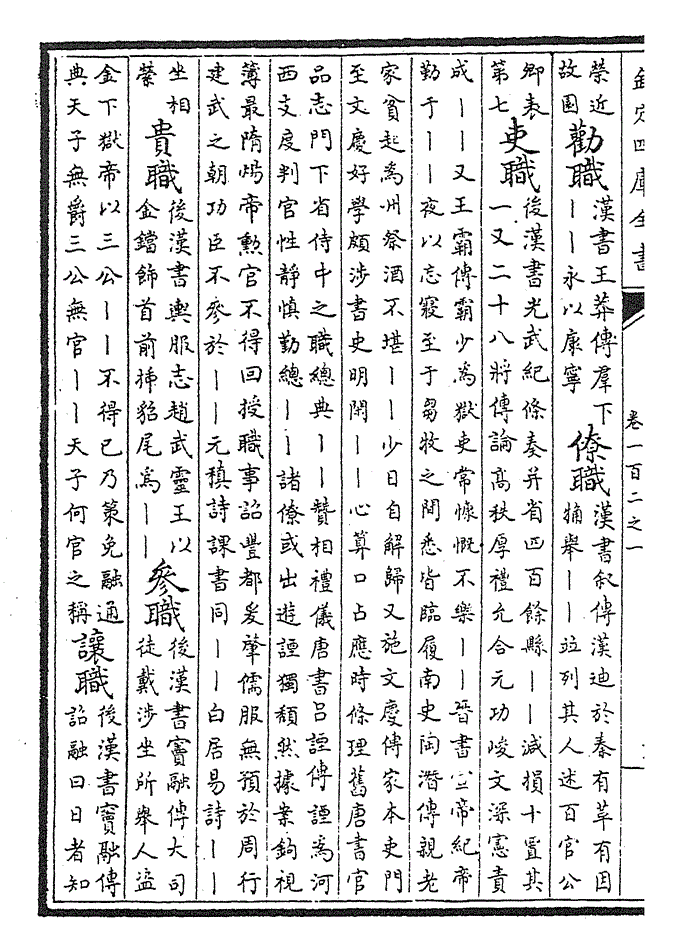 欽定四庫全書
卷一百二之一
榮近
故國
勸職
漢書王莽傳羣下
——永以康寧
僚職
漢書敘傳漢迪於秦有革有因
觕舉——竝列其人述百官公
卿表
第七
吏職
後漢書光武紀條奏并省四百餘縣——減損十置其
一又二十八將傳論高秩厚禮允合元功峻文深憲責
成——又王霸傳霸少為獄吏常慷慨不樂——晉書宣帝紀帝
勤于——夜以忘寢至于芻牧之間悉皆臨履南史陶潛傳親老
家貧起為州祭酒不堪——少日自解歸又施文慶傳家本吏門
至文慶好學頗涉書史明閑——心算口占應時條理舊唐書官
品志門下省侍中之職總典——贊相禮儀唐書吕諲傳諲為河
西支度判官性靜慎勤總——諸僚或出遊諲獨頹然據案鈎視
簿最隋煬帝勲官不得回授職事詔豐都爰肇儒服無預於周行
建武之朝功臣不參於——元稹詩課書同——白居易詩——
坐相
縈
貴職
後漢書輿服志趙武靈王以
金鐺飾首前揷貂尾為——
參職
後漢書竇融傳大司
徒戴涉坐所舉人盜
金下獄帝以三公——不得已乃策免融通
典天子無爵三公無官——天子何官之稱
讓職
後漢書竇融傳
詔融曰日者知